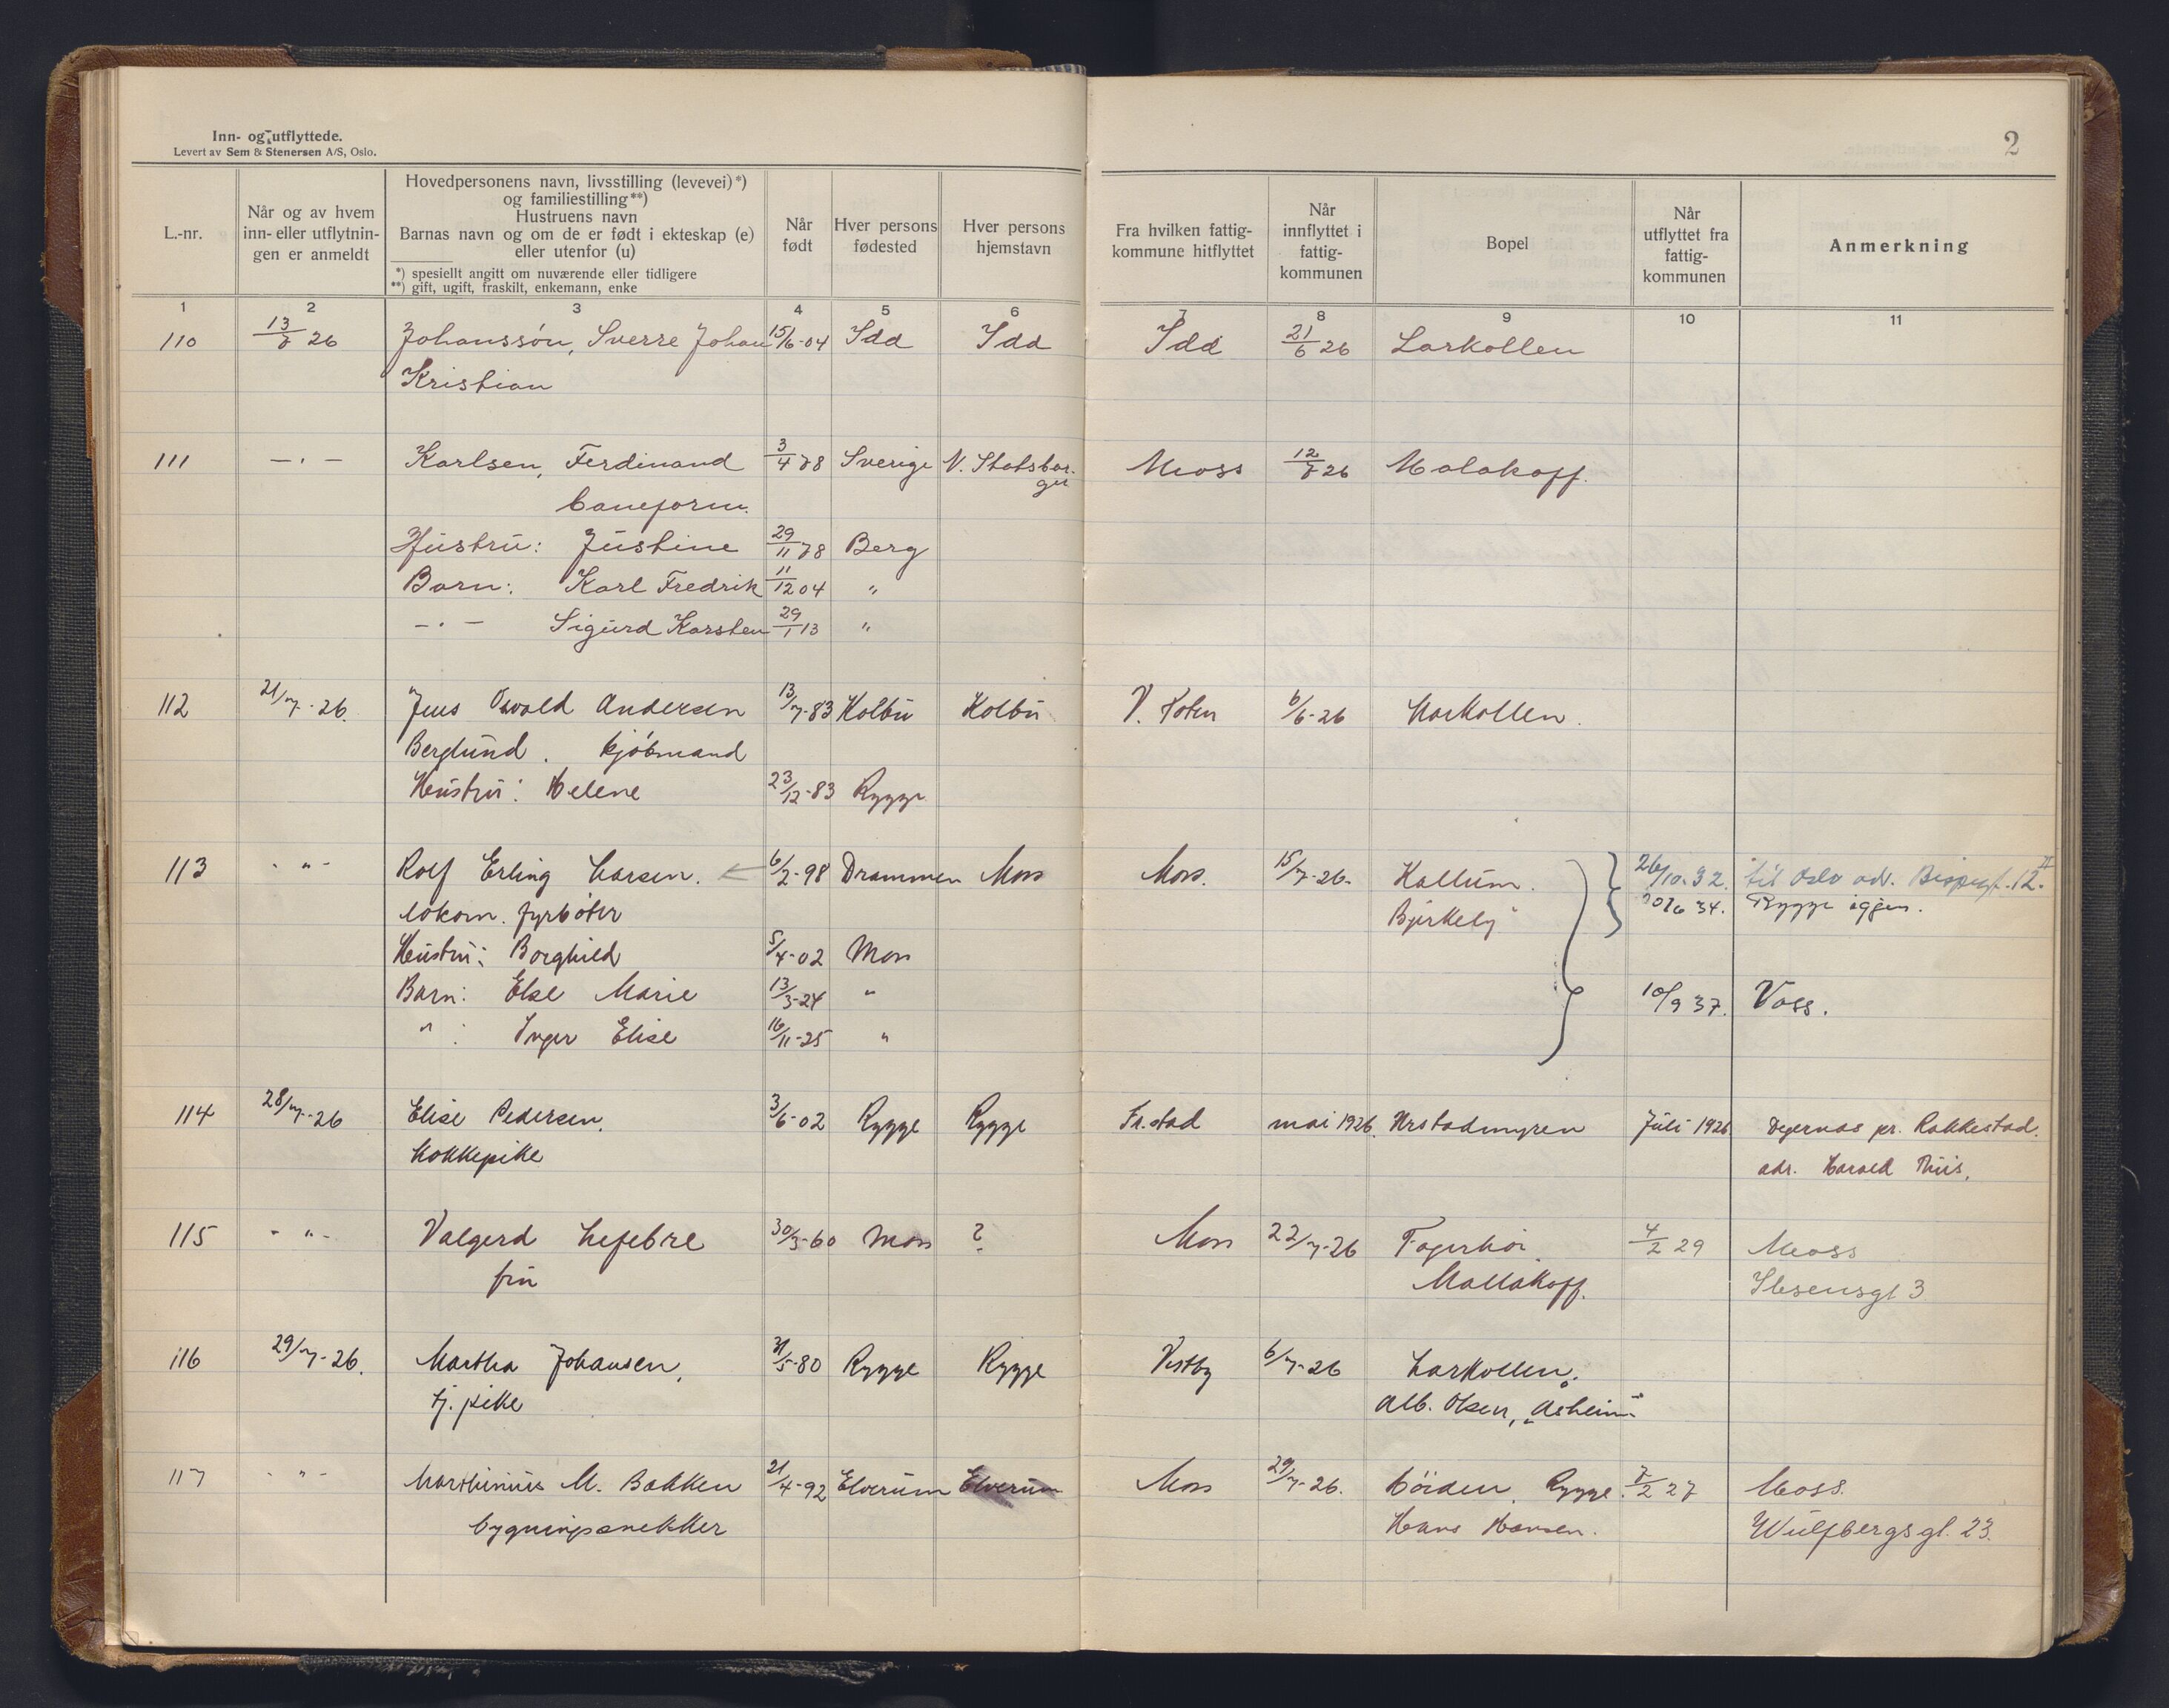 Inn- og utflyttede.
Levert av Sem & Stenersen A/S, Oslo.
2
L.-nr.
Når og av hvem
inn- eller utflytnin-
gen er anmeldt
Hovedpersonens navn, livsstilling (levevei)*)
og familiestilling**)
Hustruens navn
Barnas navn og om de er født i ekteskap (e)
eller utenfor (u)
*) spesiellt angitt om nuværende eller tidligere
**) gift, ugift, fraskilt, enkemann, enke
Når
født
Hver persons
fødested
Hver persons
hjemstavn
Fra hvilken fattig-
kommune hitflyttet
Når
innflyttet i
fattig-
kommunen
Bopel
Når
utflyttet fra
fattig-
kommunen
Anmerkning
1 2 3 4 5 6 7 8 9 10 11
110 13/7 26 Johanssön, Sverre Johan 15/6-04 Idd Idd Idd 21/6 26 Larkollen
Kristian
111 -"- Karlsen, Ferdinand 3/4 78 Sverige N. Statsbor- Moss 12/7 26 Malakoff.
ger
baneform.
Hustru: Justine 29/11 78 Berg
Barn: Karl Fredrik 11/12 04 "
-"- Sigurd Karsten 29/1 13 "
112 21/7-26. Jens Osvald Andersen 13/7-83 Kolbu Kolbu V. Toten 6/6-26 Larkollen.
Berglund. kjöbmand
Hustru: Helene 23/12-83 Rygge
113 -"- Rolf Erling Larsen. 6/2-98 Drammen Moss Moss. 15/7-26. Kallum. 26/10-32. til Oslo adr. Bispegt. 12. II
lokom. fyrböter "Bjerkely" 30/6 34. Rygge iggjen.
Hustru: Borghild 5/4-02 Moss
Barn: Else Marie 13/3-24 " 10/9 37. Voss.
" : Inger Elise 16/11-25 "
114 28/7-26 Elise Pedersen. 3/6-02 Rygge Rygge Fr.stad mai 1926. Årstadmyren Juli 1926 Degernas pr. Rakkestad.
Kokkepike adr. Harald Thiis.
115 -"- Valgerd Lefebre 30/3-60 Moss ? Moss 22/7-26 Fagerhöi. 4/2 29 Moss
fru Mallakoff. Ibsensgt 3
116 29/7-26. Martha Johansen, 31/5-80 Rygge Rygge Vestby 6/7-26 Larkollen.
tj. pike Alb. Olsen, "Åsheim"
117 -"- Marthinius M. Bakken 21/4-92 Elverum Elverum Moss 29/7-26. Höiden, Rygge. 7/2 27 Moss.
bygningssnekker Hans Hansen. Wulfbergsgt. 23.